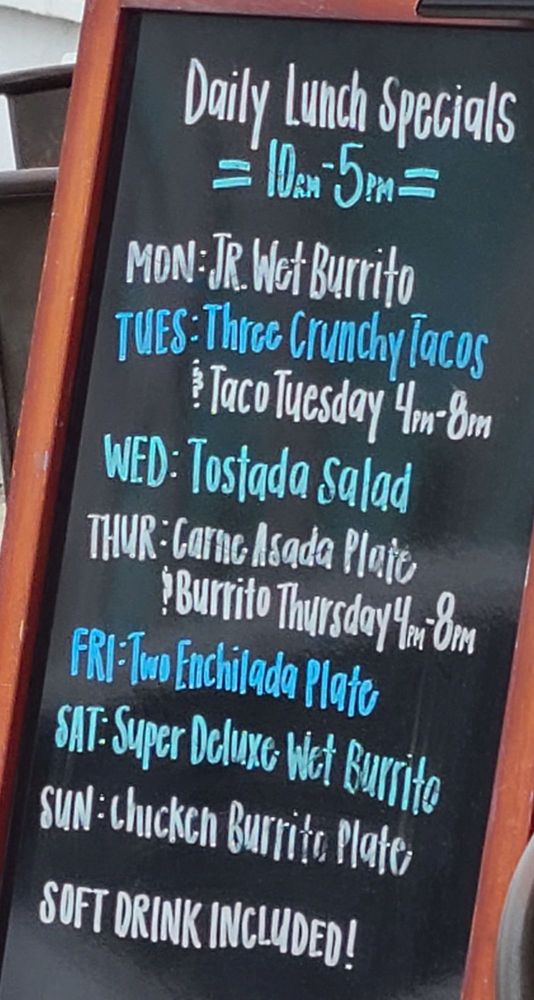 Daily Lunch Specials
= 10AM-5PM =
MON: JR. Wet Burrito
TUES: Three Crunchy Tacos
& Taco Tuesday 4PM-8PM
WED: Tostada Salad
THUR: Carne Asada Plate
& Burrito Thursday 4PM-8PM
FRI: Two Enchilada Plate
SAT: Super Deluxe Wet Burrito
SUN: Chicken Burrito Plate
SOFT DRINK INCLUDED!